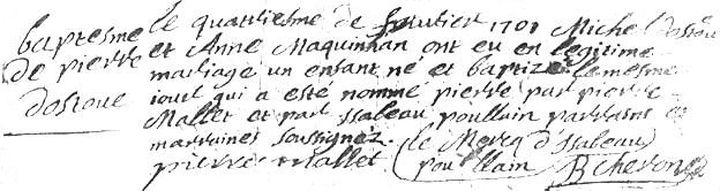 baptesme
de pierre
dosroue
le quattriesme de feuvrier 1701 Michel dosroue
et Anne Maquinhan ont eu en legitime
mariage un enfant né et baptizé le mesme
iour qui a esté nommé pierre par pierre
Mallet et par Issabeau poullain parrains et
marraines soussignez.
pierre Mallet (le Merq d'Issabeau
poullain) R cheron